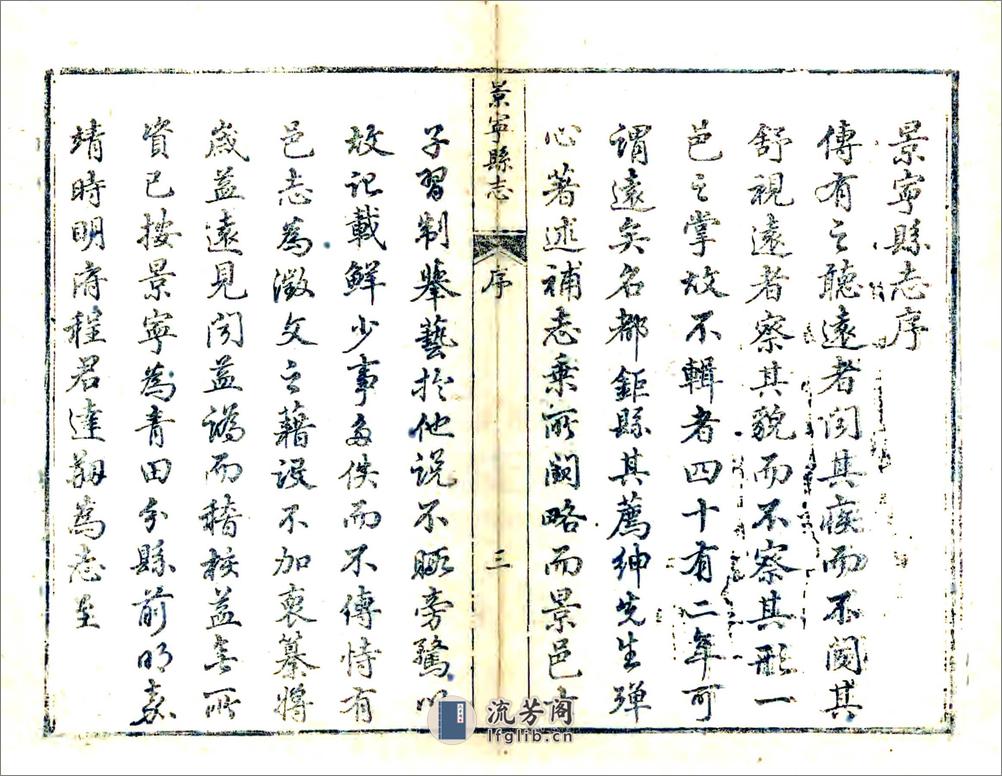 景寧縣志序
傳有之聽遠者聞其疾而不聞其
舒視遠者察其貌而不察其形一
邑之掌故不輯者四十有二年可
謂遠矣名都鉅縣其薦紳先生殫
心著述補志乘所闕略而景邑
景寧縣志
序
三
子習制舉藝於他說不暇旁騖以
故記載鮮少事多佚而不傳恃有
邑志為徵文之藉設不加裒纂將
歲益遠見聞益譌而稽核益無所
資已按景寧為青田分縣前明嘉
靖時明府程君達 為志至
流芳阁
lfglib.cn